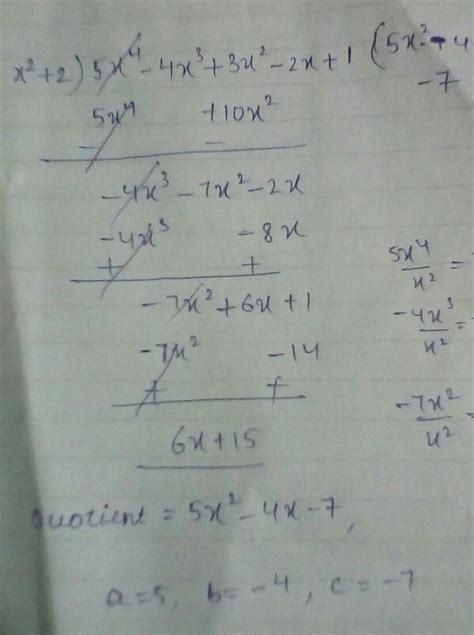 x²+2) 5x⁴-4x³+3x²-2x+1 (5x²-4
-7
5x⁴ +10x²
- -
-4x³-7x²-2x
-4x³ -8x
+ +
5x⁴/x² =
-7x²+6x+1
-4x³/x² =
-7x² -14
+ +
-7x²/x²
6x+15
Quotient = 5x²-4x-7,
a=5, b=-4, c=-7